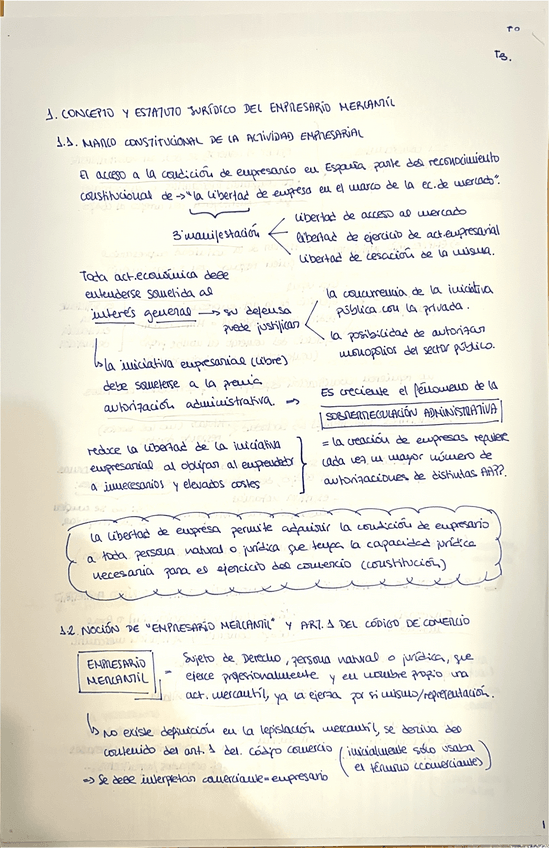 T3.
1. CONCEPTO Y ESTATUTO JURÍDICO DEL EMPRESARIO MERCANTIL
1.1. MARCO CONSTITUCIONAL DE LA ACTIVIDAD EMPRESARIAL
El acceso a la condición de empresario en España parte del reconocimiento
constitucional de → "la libertad de empresa en el marco de la ec. de mercado".
3 manifestación
libertad de acceso al mercado
libertad de ejercicio de act. empresarial
libertad de cesación de la misma.
Toda act. económica debe
entenderse sometida al
interés general → su defensa
puede justificar
la concurrencia de la iniciativa
pública con la privada.
la posibilidad de autorizar
monopolios del sector público.
la iniciativa empresarial (libre)
debe someterse a la previa
autorización administrativa. ⇒
Es creciente el fenómeno de la
SOBRERREGULACIÓN ADMINISTRATIVA
= la creación de empresas requiere
cada vez un mayor número de
autorizaciones de distintas AAPP.
reduce la libertad de la iniciativa
empresarial al obligar al emprendedor
a innecesarios y elevados costes
La libertad de empresa permite adquirir la condición de empresario
a toda persona natural o jurídica que tenga la capacidad jurídica
necesaria para el ejercicio del comercio (constitución)
1.2. NOCIÓN DE "EMPRESARIO MERCANTIL" Y ART. 1 DEL CÓDIGO DE COMERCIO
EMPRESARIO
MERCANTIL
= Sujeto de Derecho, persona natural o jurídica, que
ejerce profesionalmente y en nombre propio una
act. mercantil, ya la ejerza por si mismo/representación.
No existe definición en la legislación mercantil, se deriva del
contenido del art. 1 del código comercio (inicialmente sólo usaba
el término comerciantes)
⇒ Se debe interpretar comerciante = empresario
1